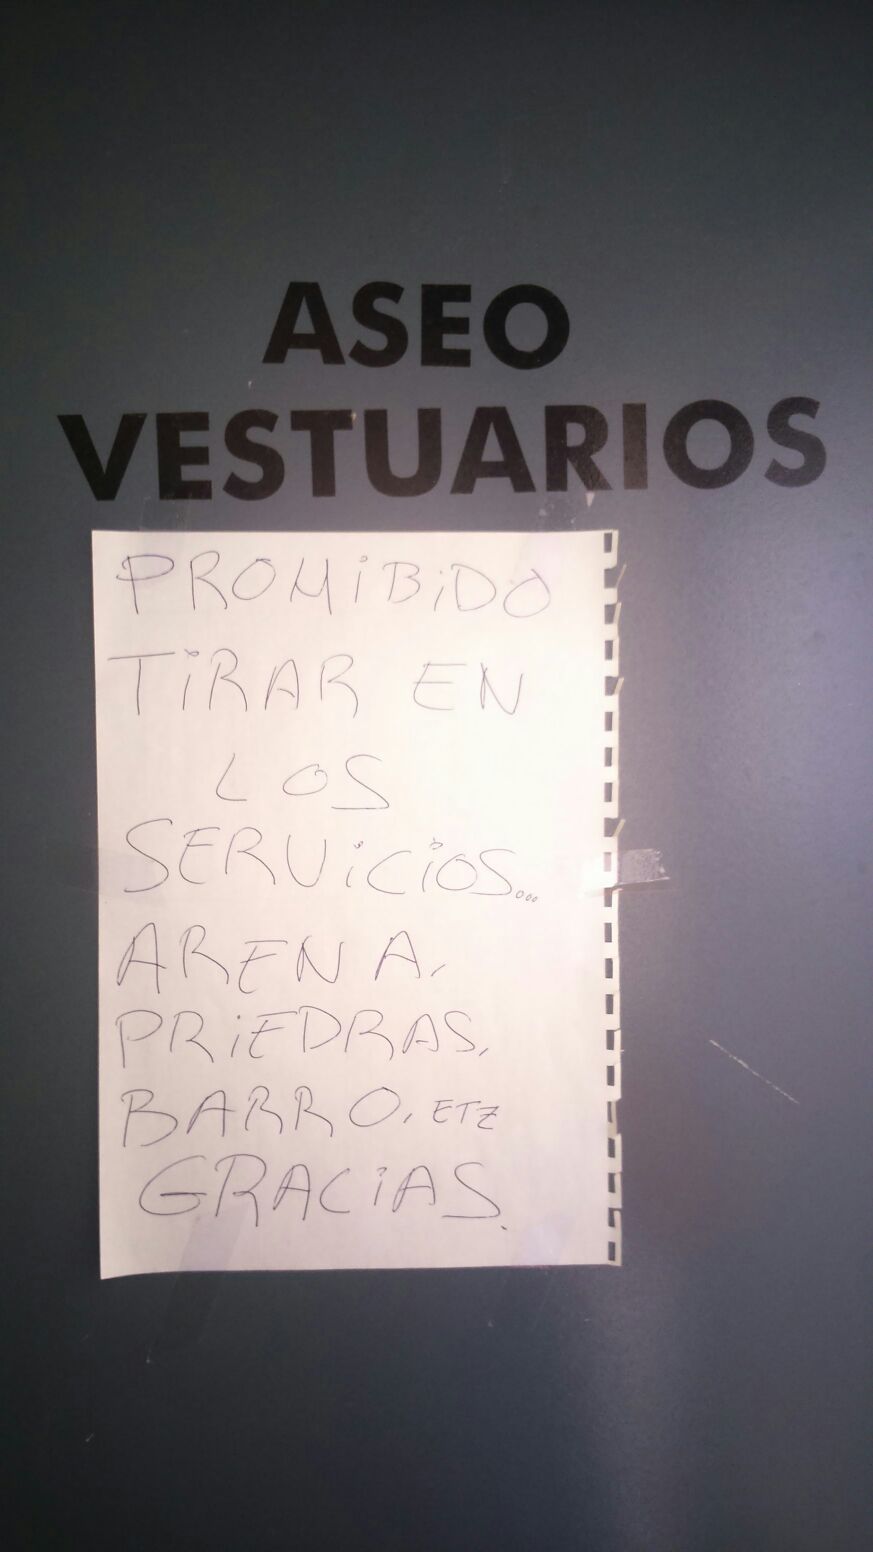 ASEO
VESTUARIOS
PROHIBIDO
TIRAR EN
LOS
SERVICIOS...
ARENA,
PRIEDRAS,
BARRO, ETZ
GRACIAS.